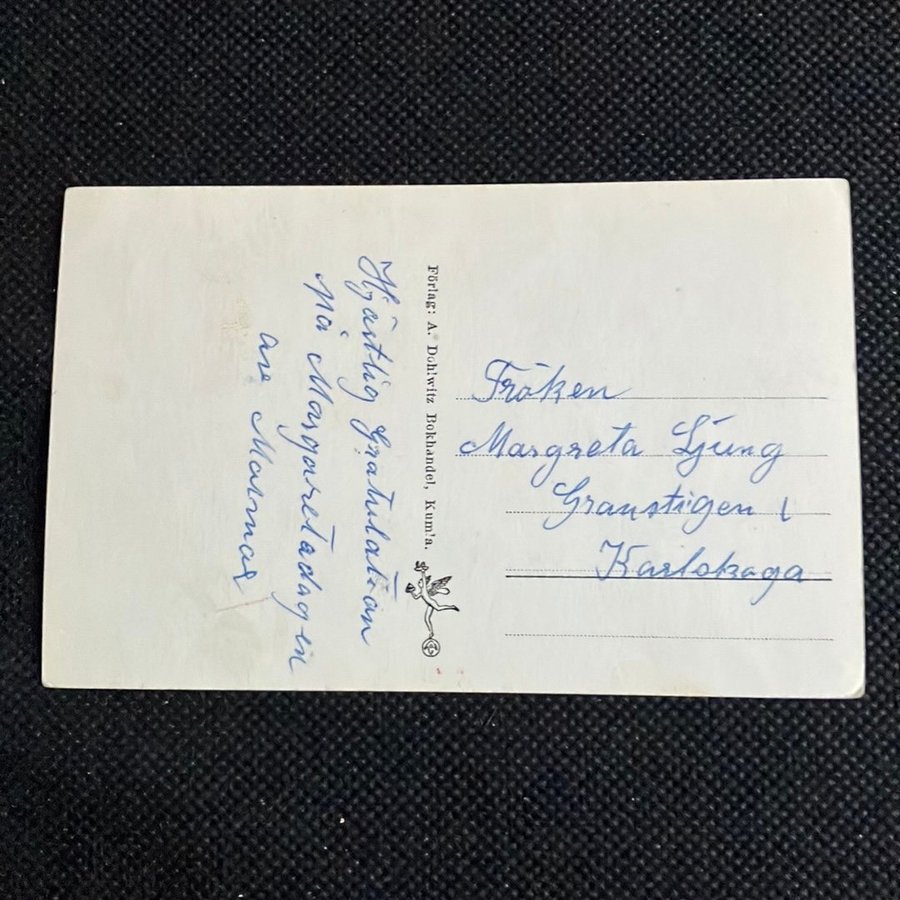 Hjärtlig Gratulation
på Margaretadagen
Mormor
Förlag: A. Dohlwitz Bokhandel, Kumla.
Fröken
Margreta Ljung
Granstigen 1
Karlskoga